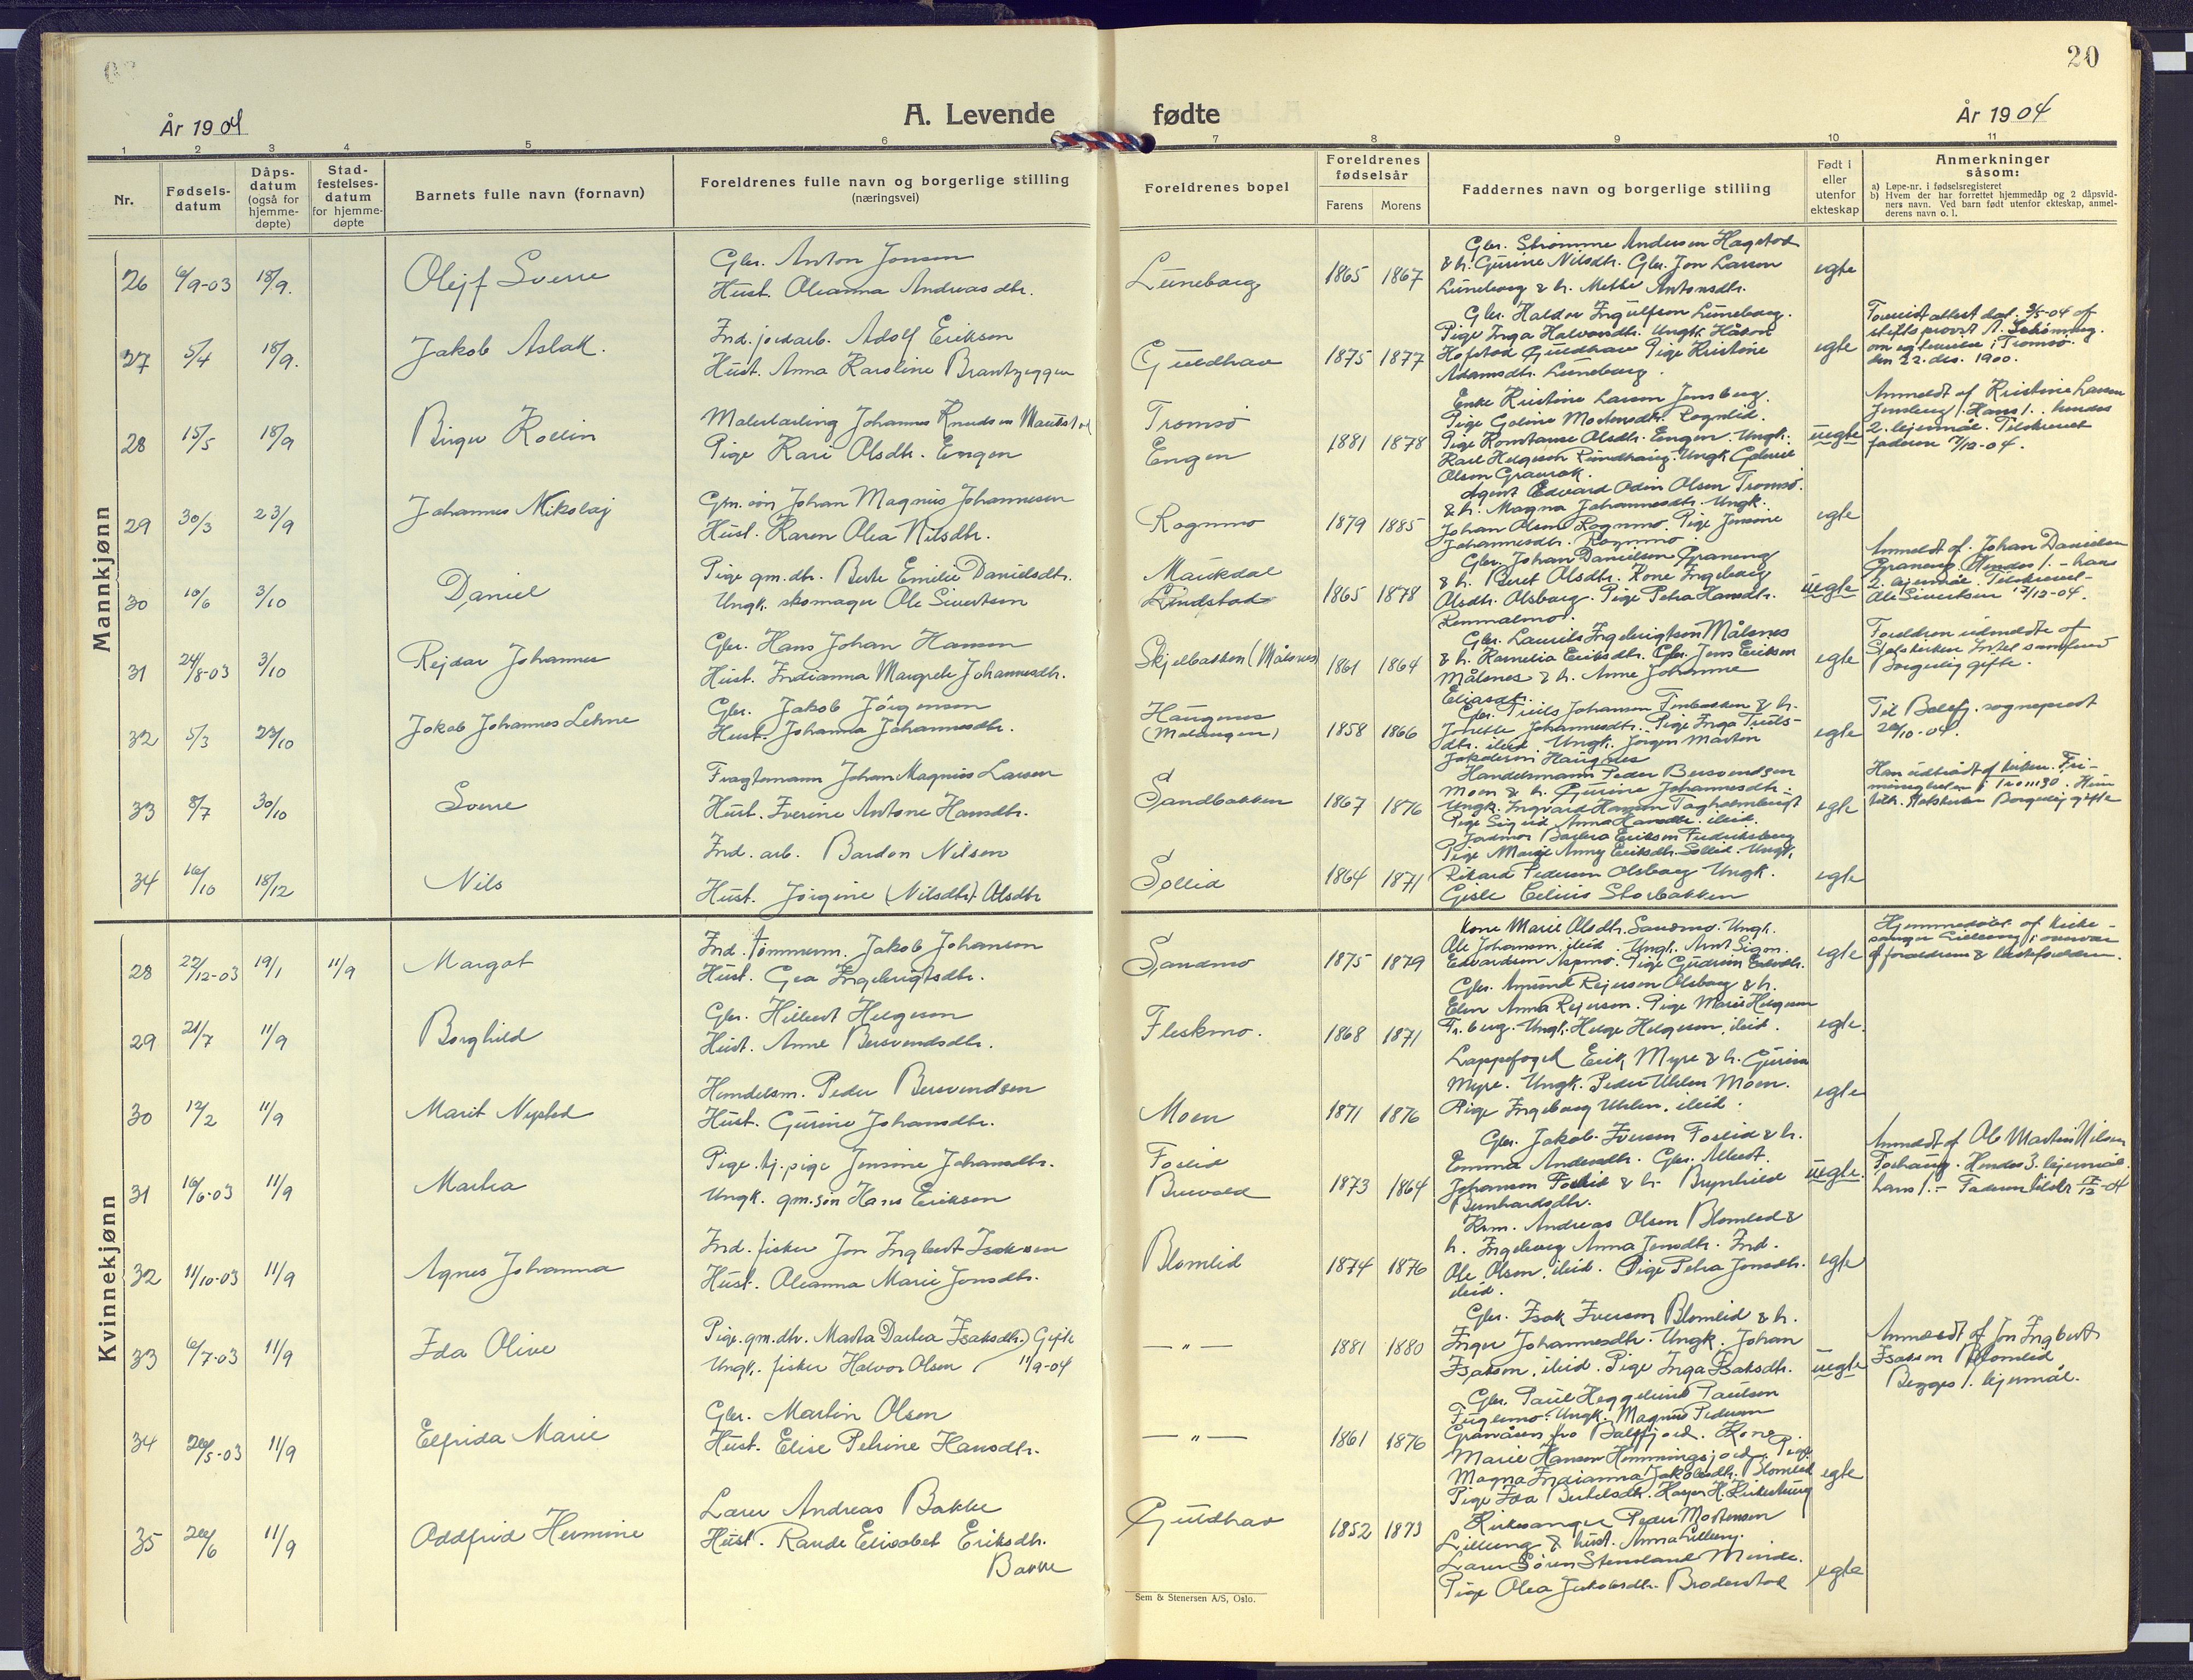 20
År 1904
A. Levende fødte
År 1904
1 2 3 4 5 6 7 8 9 10 11
Nr.
Fødselsdatum
Dåpsdatum (også for hjemmedøpte)
Stadfestelsesdatum for hjemmedøpte
Barnets fulle navn (fornavn)
Foreldrenes fulle navn og borgerlige stilling (næringsvei)
Foreldrenes bopel
Foreldrenes fødselsår
Farens Morens
Faddernes navn og borgerlige stilling
Født i eller utenfor ekteskap
Anmerkninger såsom:
a) Løpe-nr. i fødselsregisteret
b) Hvem der har forrettet hjemmedåp og 2 dåpsvidners navn. Ved barn født utenfor ekteskap, anmelderens navn o. l.
Mannkjønn
26 6/9-03 18/9. Olejf Sverre
Gbr. Anton Jonsen
Hust. Oleanna Andreasdtr.
Luneborg 1865 1867
Gbr. Strømme Andersen Hagstad
& h. Gurine Nilsdtr. Gbr. Jon Larsen
Luneborg & h. Methe Antonsdtr.
egte
27 5/4 18/9. Jakob Aslak.
Ind. jordarb. Adolf Erikson
Hust. Anna Karoline Brantzeggen
Guldhav 1875 1877
Gbr. Haldor Ingulfson Luneborg.
Pige Inga Halvorsdtr. Ungk. Håkon
Hofstad Guldhav Pige Kristine
Adamsdtr. Luneborg.
egte
stiftsprovst
om egtevielse i Tromsø
den 22. des. 1900.
28 15/5 18/9 Birger Kollin
Malerlærling Johannes Knudsen
Pige Kari Olsdtr. Engen
Tromsø
Engen 1881 1878
Enke Kristine Larsen Jensberg.
Pige Goline Mortensdtr. Rognlid.
Pige Konstanse Olsdtr. Engen. Ungk.
Karl Helgeson Rundhaug. Ungk Gabriel
Olson
uegte
Anmeldt af Kristine Larsen
Jensberg. Hans 1. hendes
2. lejermål. Tilskrevet
faderen 7/12-04.
29 30/3 23/9 Johannes Nikolaj
Gm. søn Johan Magnus Johannesen
Hust. Karen Olea Nilsdtr.
Rognmo 1879 1885
Agent Edvard Odin Olsen Tromsø.
& h. Magna Johannesdtr. Ungk.
Johan Olsen Rognmo. Pige Jensine
Johannesdtr. Rognmo.
egte
30 10/6 3/10 Daniel
Pige gm. dtr. Berte Emilie Danielsdtr.
Ungk. skomager Ole Sivertsen
Maukdal
Lundstad 1865 1878
Gbr. Johan Danielsen Graneng
& h. Beret Olsdtr. Kone Ingeborg
Olsdtr. Olsborg. Pige Petra Hansdtr.
uegte
Anmeldt af Johan Danielsen
Graneng. Hendes 1. - hans
2. lejermål. Tilskrevet
Ole Sivertsen 17/12-04.
31 24/8-03 3/10 Rejdar Johannes
Gbr. Hans Johan Hansen
Hust. Indianna Margrete Johannesdtr.
Skjelbakken (Målsnes) 1861 1864
Gbr. Laurits Ingebrigtsen Målsnes
& h. Kornelia Eriksdtr. Gbr. Jens Erikson
Målsnes & h. Anne Johanne
Eliasdtr.
egte
Forældren udmeldte af
Statskirken
Borgerlig gifte.
32 5/3 23/10 Jokob Johannes Lehne
Gbr. Jakob Jörgenson
Hust. Johanna Johannesdtr.
Haugenes
(Malangen) 1858 1866
Gbr. Truls Johansen & h.
Johannesdtr. Pige Inga Truls-
dtr. ibid. Ungk. Jørgen Martin
Jakobson Haugenes
egte
Til Balsfj. sogneprest
29/10-04.
33 8/7 30/10 Sverre
Fragtemann Johan Magnus Larsen
Hust. Iverine Antone Hansdtr.
Sandbakken 1867 1876
Handelsmann Peder Bersvendsen
Moen & h. Gurine Johannesdtr.
Ungk. Ingvard Hansen
Pige Sigrid Anna Hansdtr. ibid.
egte
Han udtrådt af kirken.
Borgerlig gifte
34 16/10 18/12 Nils
Ind. arb. Bardon Nilsen
Hust. Jörgine (Nilsdtr) Olsdtr
Sollid 1864 1871
Jadmor Barbra Erikson Fredriksberg
Pige Marie Anny Eriksdtr. Sollid. Ungk.
Rikard Pederson Olsborg Ungk.
Gisle Storbakken
egte
Kvinnekjønn
28 22/12-03 19/1 11/9 Margot
Ind. tömmerm. Jakob Johanson
Hust. Gea Ingebrigtsdtr.
Sandmo 1875 1879
Kone Marie Olsdtr. Sandmo. Ungk.
Ole Johanson, ibid. Ungk. Arnt Sigon.
Edvardsen Aspmo. Pige Gudrun Edvdtr.
egte
Hjemmedøbt af kirke-
sanger Lilleeng i overvær
af forældrene &
29 21/7 11/9 Borghild
Gbr. Hilbert Helgeson
Hust. Anne Bersvendsdtr.
Fleskmo. 1868 1871
Gbr. Amund Rejerson Olsborg & h.
Elen Anna Rejerson. Pige Marie Helgeson
Fr.berg. Ungk. Helge Helgeson, ibid.
egte.
30 12/2 11/9 Marit Nysted
Handelsm. Peder Bersvendsen
Hust. Gurine Johansdtr.
Moen 1871 1876
Lappefoged Erik Myre & h. Gurina
Myre. Ungk. Peder Uhlen Moen.
Pige Ingeborg Uhlen, ibid.
egte
31 16/6-03 11/9 Martea
Pige. tj. pige Jensine Johansdtr.
Ungk. gm. søn Hans Erikson
Foslid
Brevold 1873 1864
Gbr. Jakob Iverson Foslid & h.
Emma Andersdtr. Gbr. Albert
Johanson Foslid & h. Brynhild
Bernhardsdtr.
uegte.
Anmeldt af Ole Martin Nilson
Foshaug. Hendes 3. lejermål.
hans 1. - Faderen tilskr 17/12-04
32 11/10-03 11/9 Agnes Johanna
Ind. fisker Jon Ingbert Isaksen
Hust. Oleanna Marie Jonsdtr.
Blomlid 1874 1876
Krm. Andreas Olsen Blomlid &
h. Ingeborg Anna Jonsdtr. Ind.
Ole Olsen, ibid. Pige Petra Jonsdtr.
ibid.
egte
33 6/7-03 11/9 Ida Olive
Pige. gm. dtr. Marta Dartea Isaksdtr.) Gifte
Ungk. fisker Halvor Olsen 11/9-04
— " — 1881 1880
Gbr. Isak Iverson Blomlid & h.
Inger Johannesdtr. Ungk. Johan
Isakson, ibid. Pige Inga Isaksdtr.
uegte
Anmeldt af Jon Ingbert
Isakson Blomlid.
Begges 1. lejermål.
34 26/5-03 11/9 Elfrida Marie
Gbr. Martin Olsen
Hust. Elise Petrine Hansdtr.
— " — 1861 1876
Gbr. Paul Heggelund Paulson
Fuglemo. Ungk. Magnus Pederson
Granåsen fra Balsfjord. Kone
Marie Hansen Hemmingsjord.
Magna Indianna Jakobsdtr. Blomlid
Pige Ida Bertelsdtr.
egte
35 26/6 11/9 Oddfrid Hermine
Lærer Andreas Bakke
Hust. Rande Elisabet Eriksdtr.
Bakke
Guldhav 1852 1873
Kirkesanger Peder Mortensen
Lilleeng & hust. Anna Lilleeng.
Lærer Søren Stensland Minde.
Pige Olea Jakobsdtr. Broderstad
egte
Sem & Stenersen A/S, Oslo.